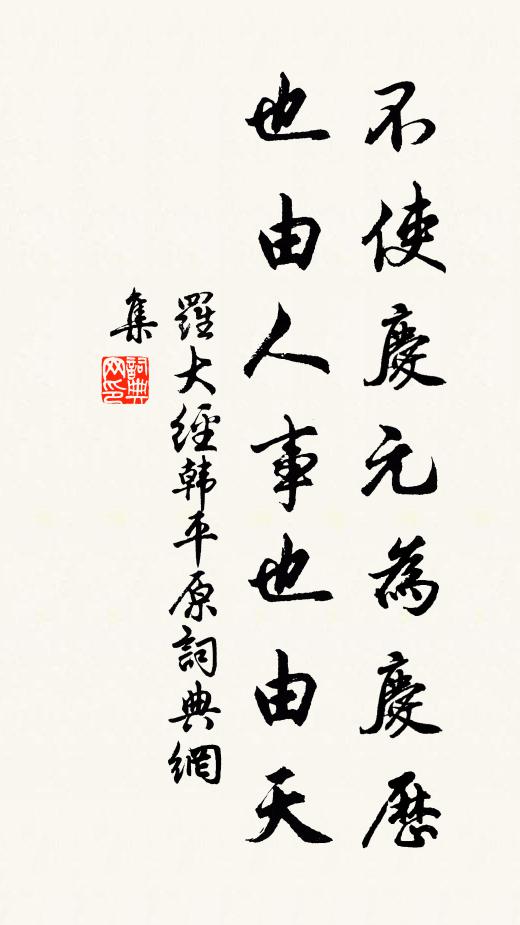 不使慶元為慶歷
也由人事也由天
羅大經韩平原詞典網
集
詞典
网印